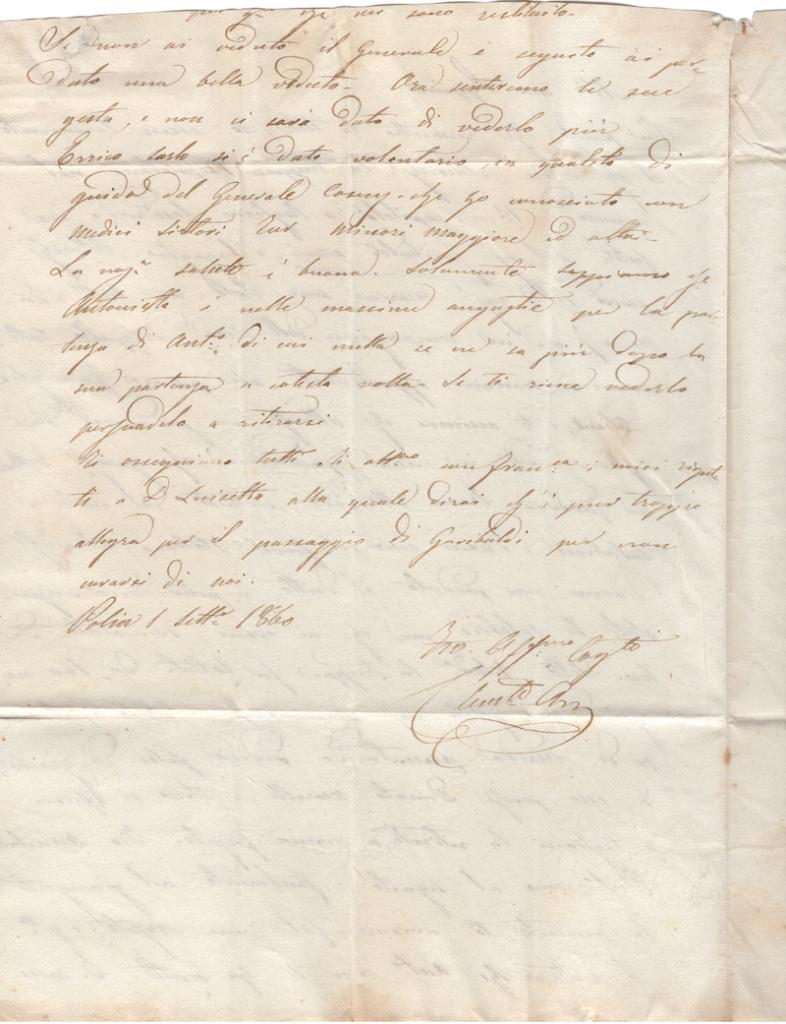 che me sono restituito.
Se non ai veduto il Generale e seguito ai per-
duto una bella veduta. Ora sentiremo le sue
gesta, e non ci sarà dato di vederlo più
Errico Sarlo si è dato volontario, in qualità di
guida del Generale Cosenz che go conosciuto con
Medici Sirtori Tur Missori Maggiore ed altri.
La nos.ª salute è buona. Solamente sappiamo che
Antonietta è nelle massime angustie per la par-
tenza di Ant.º di cui nulla se ne sa più dopo la
sua partenza a cotesta volta. Se ti viene vederlo
persuadelo a ritirarsi
Vi ossequiamo tutti. Ti abb:mo con fran:ca; i miei rispet-
ti a D. Luisetta alla quale dirai ch'è pur troppo
allegra per il passaggio di Garibaldi per non
curarsi di noi.
Polia 1 Sett.e 1860
Aff:mo